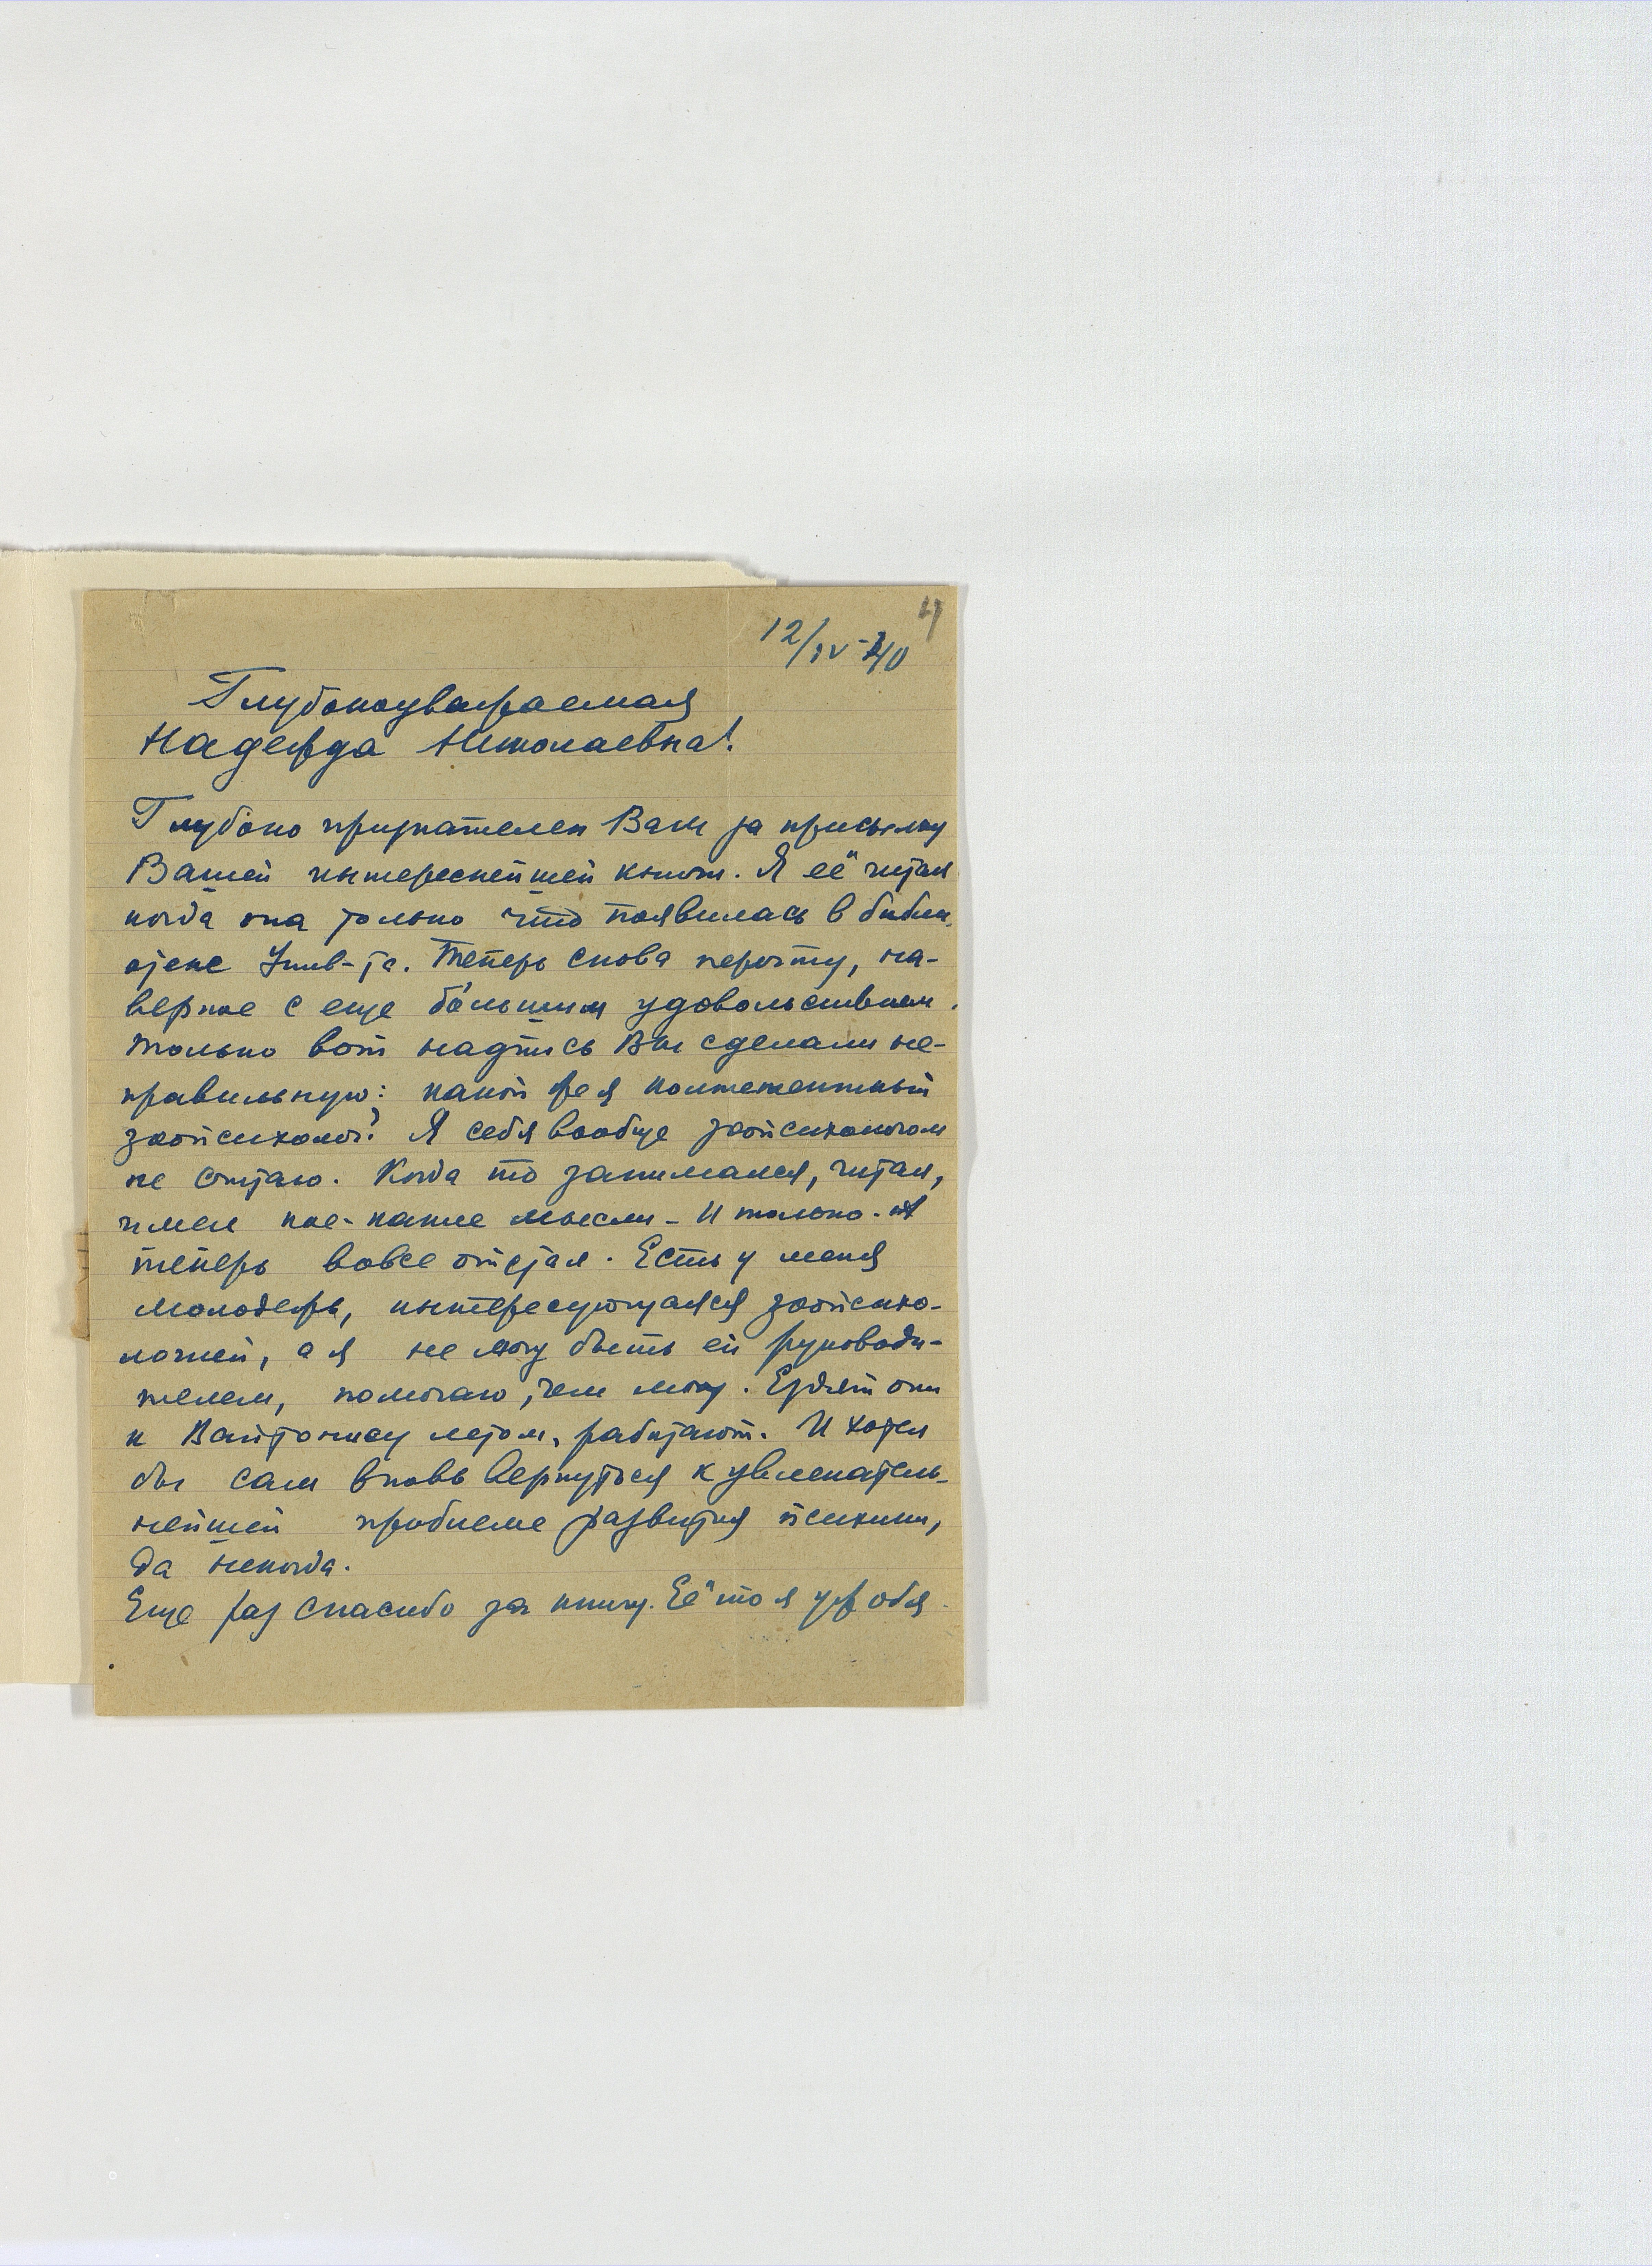 4
12/IV-40
Глубокоуважаемая
Надежда Николаевна!
Глубоко признателен Вам за присылку
Вашей интереснейшей книги. Я её читал
когда она только что появилась в библи
отеке Унив-та. Теперь снова перечту, на-
верное с еще бо́льшим удовольствием.
Только вот надпись Вы сделали не-
правильную: какой же я компетентный
зоопсихолог? Я себя вообще зоопсихологом
не считаю. Когда то занимался, читал,
имел кое-какие мысли - и только.
теперь вовсе отстал. Есть у меня
молодежь, интересующаяся зоопсихо-
логией, а я не могу быть ей руководи-
телем, помогаю, чем могу. Ездят они
к Войтонису летом, работают. И хотел
бы сам вновь вернуться к увлекатель-
нейшей проблеме развития психики,
да некогда.
Еще раз спасибо за книгу. Её то я уж обя